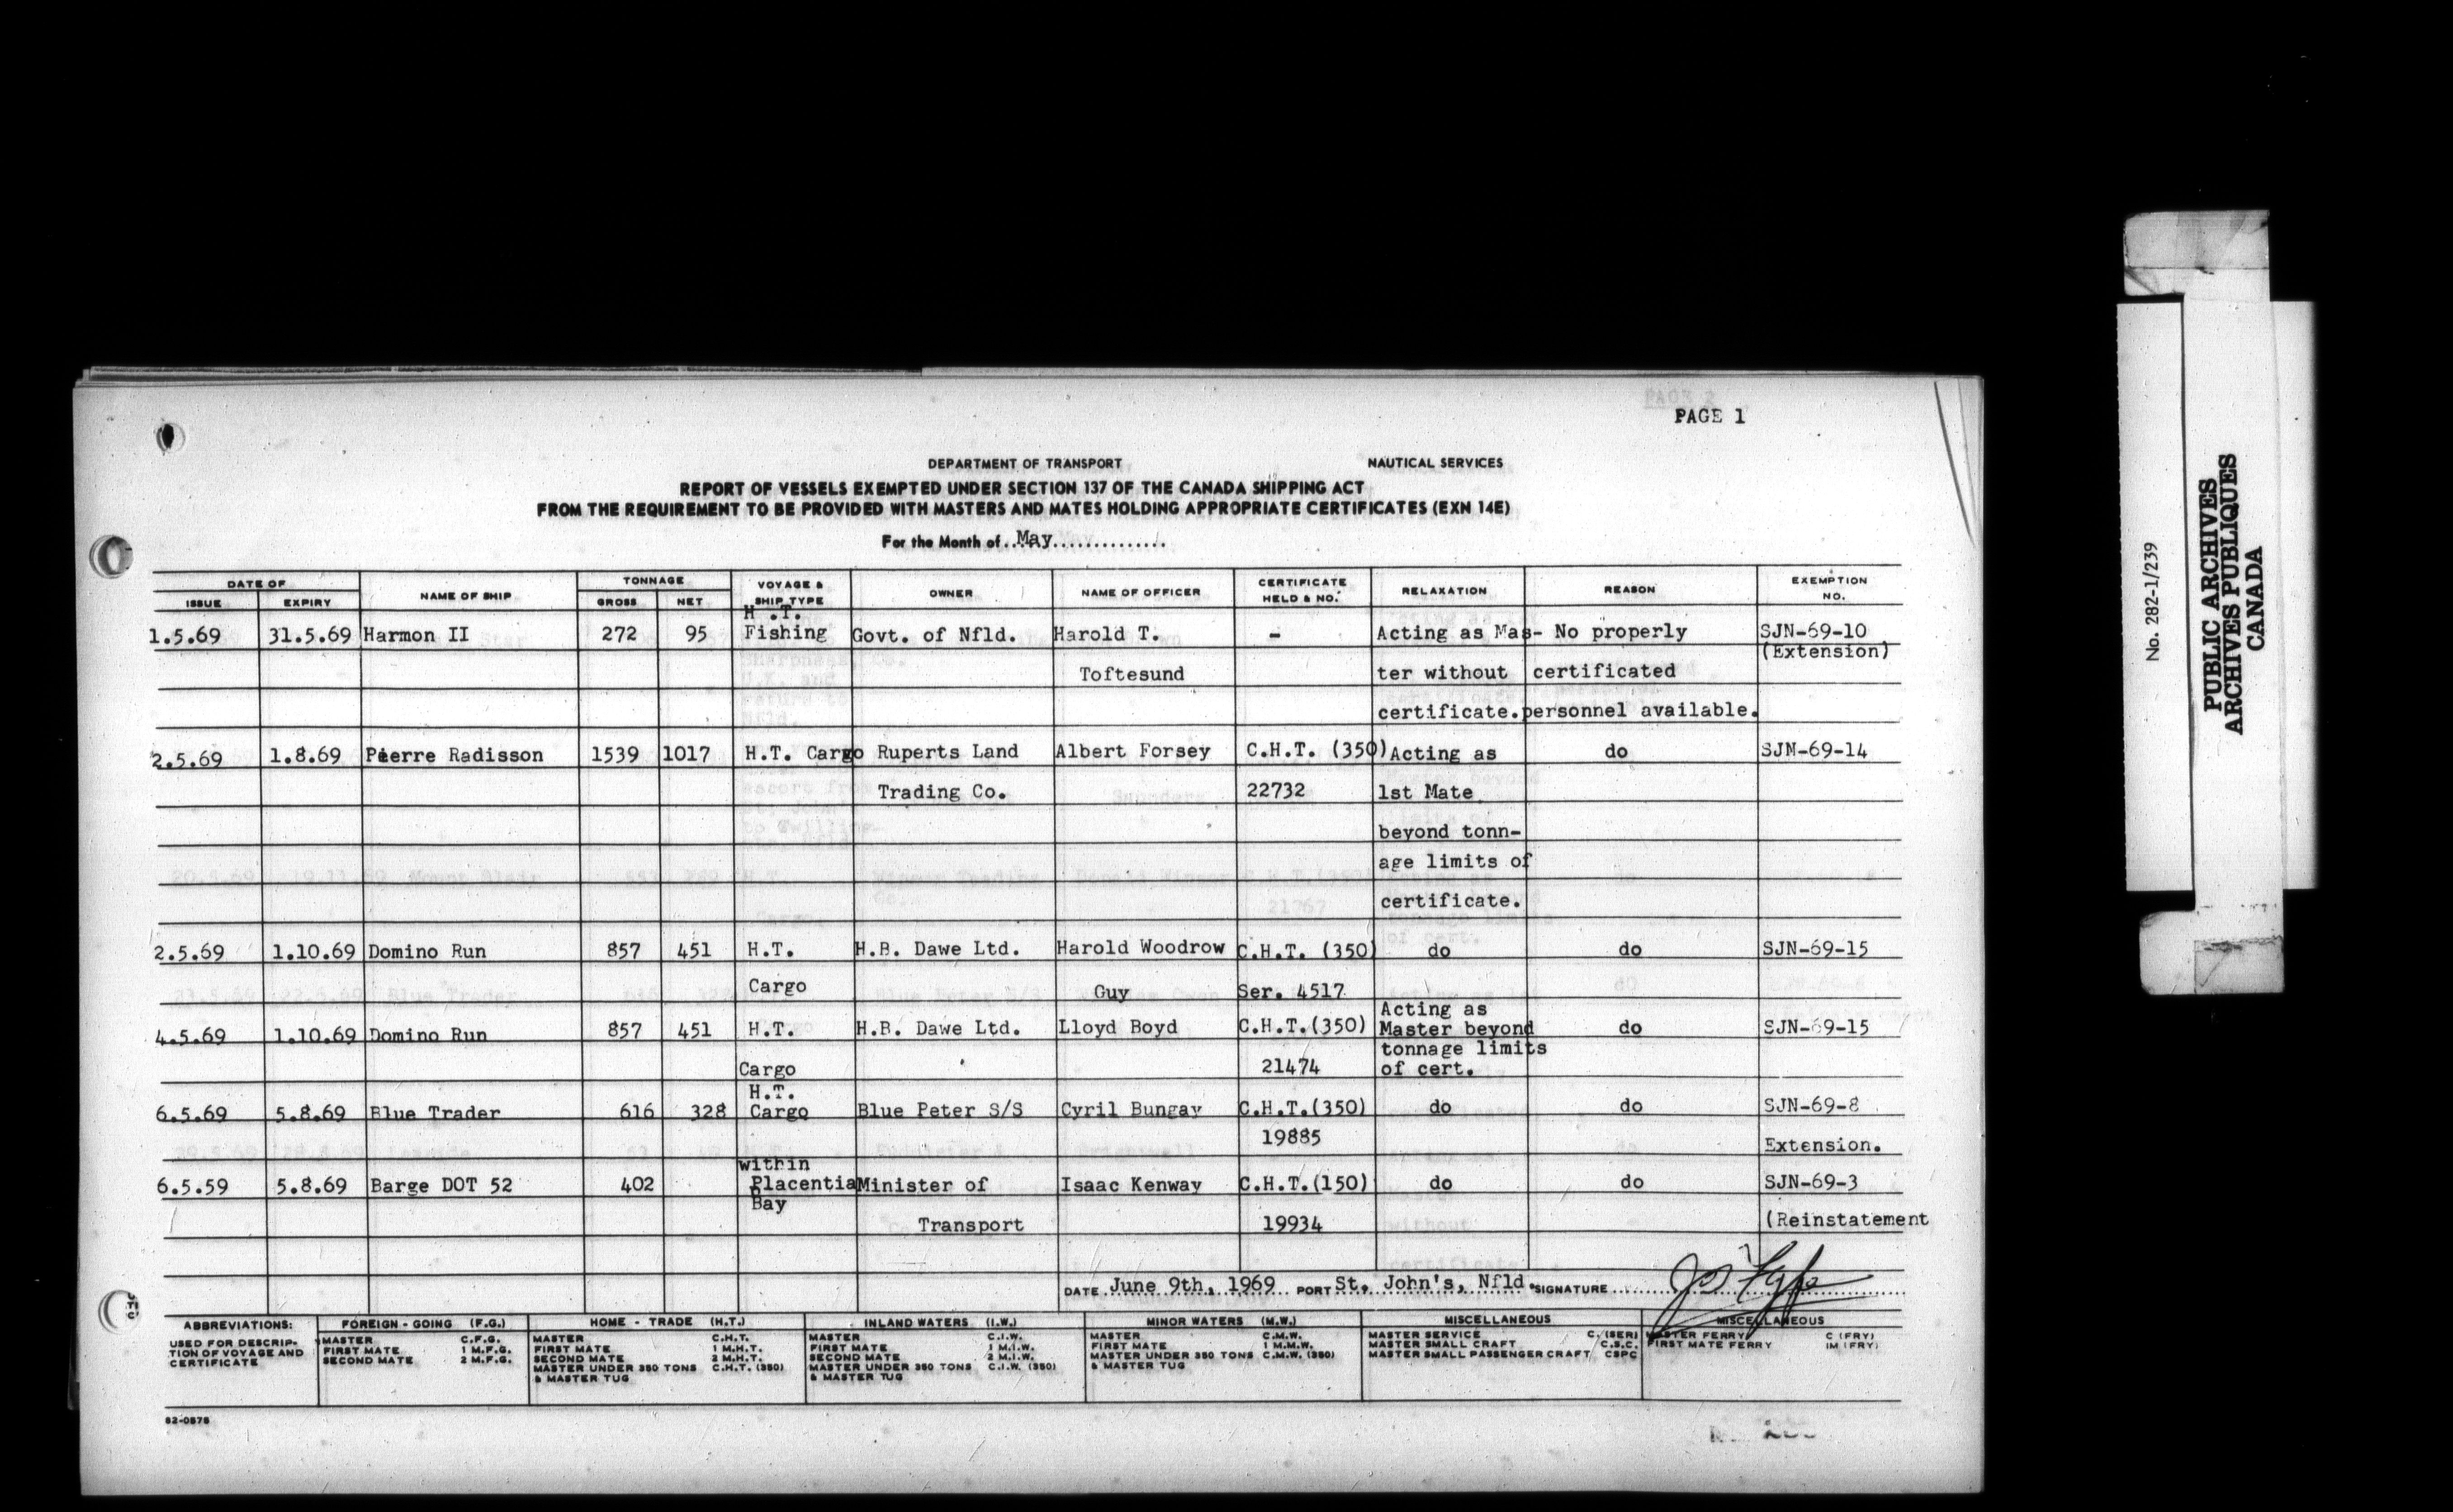 PAGE 1
DEPARTMENT OF TRANSPORT NAUTICAL SERVICES
REPORT OF VESSELS EXEMPTED UNDER SECTION 137 OF THE CANADA SHIPPING ACT
FROM THE REQUIREMENT TO BE PROVIDED WITH MASTERS AND MATES HOLDING APPROPRIATE CERTIFICATES (EXN 14E)
For the Month of..May..............
DATE OF TONNAGE VOYAGE & CERTIFICATE EXEMPTION
ISSUE EXPIRY NAME OF SHIP GROSS NET SHIP TYPE OWNER NAME OF OFFICER HELD & NO. RELAXATION REASON NO.
H.T.
1.5.69 31.5.69 Harmon II 272 95 Fishing Govt. of Nfld. Harold T. - Acting as Mas- No properly SJN-69-10
(Extension)
Toftesund ter without certificated
certificate. personnel available.
2.5.69 1.8.69 Pierre Radisson 1539 1017 H.T. Cargo Ruperts Land Albert Forsey C.H.T. (350) Acting as do SJN-69-14
Trading Co. 22732 1st Mate
beyond tonn-
age limits of
certificate.
2.5.69 1.10.69 Domino Run 857 451 H.T. H.B. Dawe Ltd. Harold Woodrow C.H.T. (350) do do SJN-69-15
Cargo Guy Ser. 4517
Acting as
4.5.69 1.10.69 Domino Run 857 451 H.T. H.B. Dawe Ltd. Lloyd Boyd C.H.T.(350) Master beyond do SJN-69-15
tonnage limits
Cargo 21474 of cert.
H.T.
6.5.69 5.8.69 Blue Trader 616 328 Cargo Blue Peter S/S Cyril Bungay C.H.T.(350) do do SJN-69-8
19885 Extension.
within
6.5.59 5.8.69 Barge DOT 52 402 Placentia Minister of Isaac Kenway C.H.T.(150) do do SJN-69-3
Bay
Transport 19934 (Reinstatement
DATE June 9th, 1969 PORT St. John's, Nfld. SIGNATURE
ABBREVIATIONS: FOREIGN - GOING (F.G.) HOME - TRADE (H.T.) INLAND WATERS (I.W.) MINOR WATERS (M.W.) MISCELLANEOUS MISCELLANEOUS
USED FOR DESCRIP- MASTER C.F.G. MASTER C.H.T. MASTER C.I.W. MASTER C.M.W. MASTER SERVICE C. (SER) MASTER FERRY C (FRY)
TION OF VOYAGE AND FIRST MATE 1 M.F.G. FIRST MATE 1 M.H.T. FIRST MATE 1 M.I.W. FIRST MATE 1 M.M.W. MASTER SMALL CRAFT C.S.C. FIRST MATE FERRY IM (FRY)
CERTIFICATE SECOND MATE 2 M.F.G. SECOND MATE 2 M.H.T. SECOND MATE 2 M.I.W. MASTER UNDER 350 TONS C.M.W. (350) MASTER SMALL PASSENGER CRAFT CSPC
MASTER UNDER 350 TONS C.H.T. (350) MASTER UNDER 350 TONS C.I.W. (350) & MASTER TUG
& MASTER TUG & MASTER TUG
82-0575
No. 282-1/239
PUBLIC ARCHIVES
ARCHIVES PUBLIQUES
CANADA